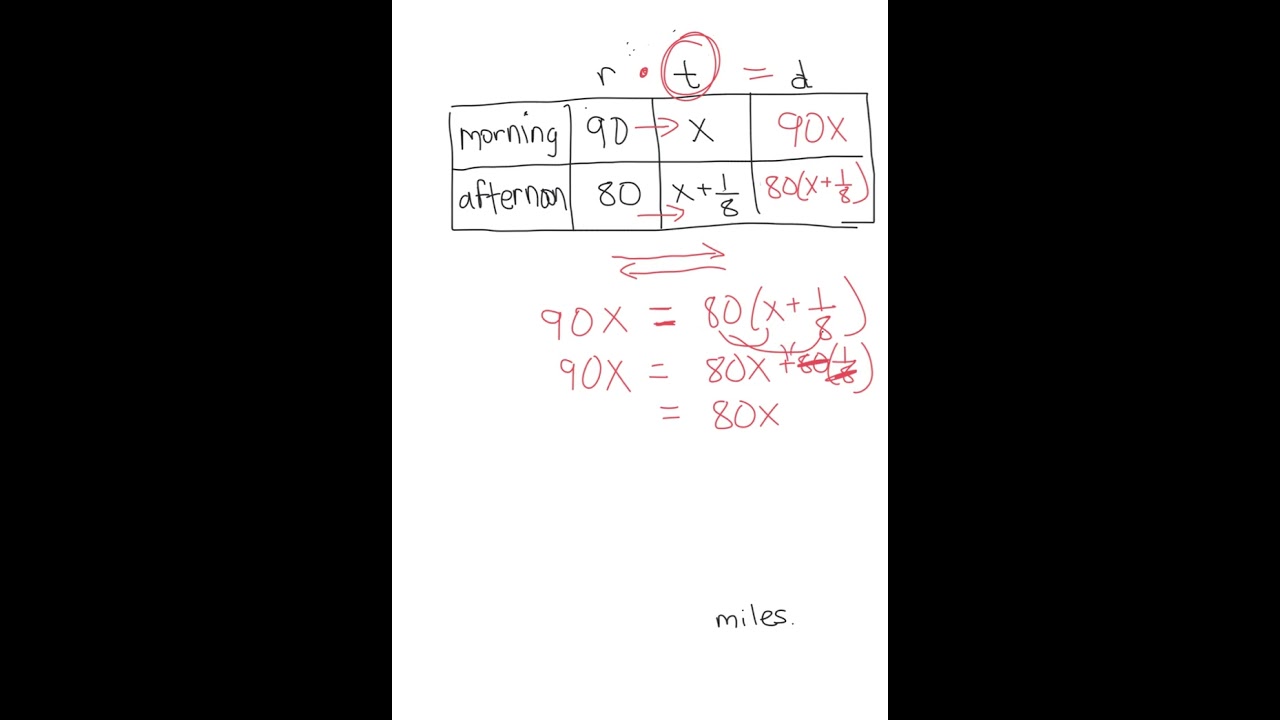 r · t = d
morning 90 → x 90x
afternoon 80 → x + 1/8 80(x + 1/8)
90x = 80(x + 1/8)
90x = 80x + 80(1/8)
= 80x
miles.